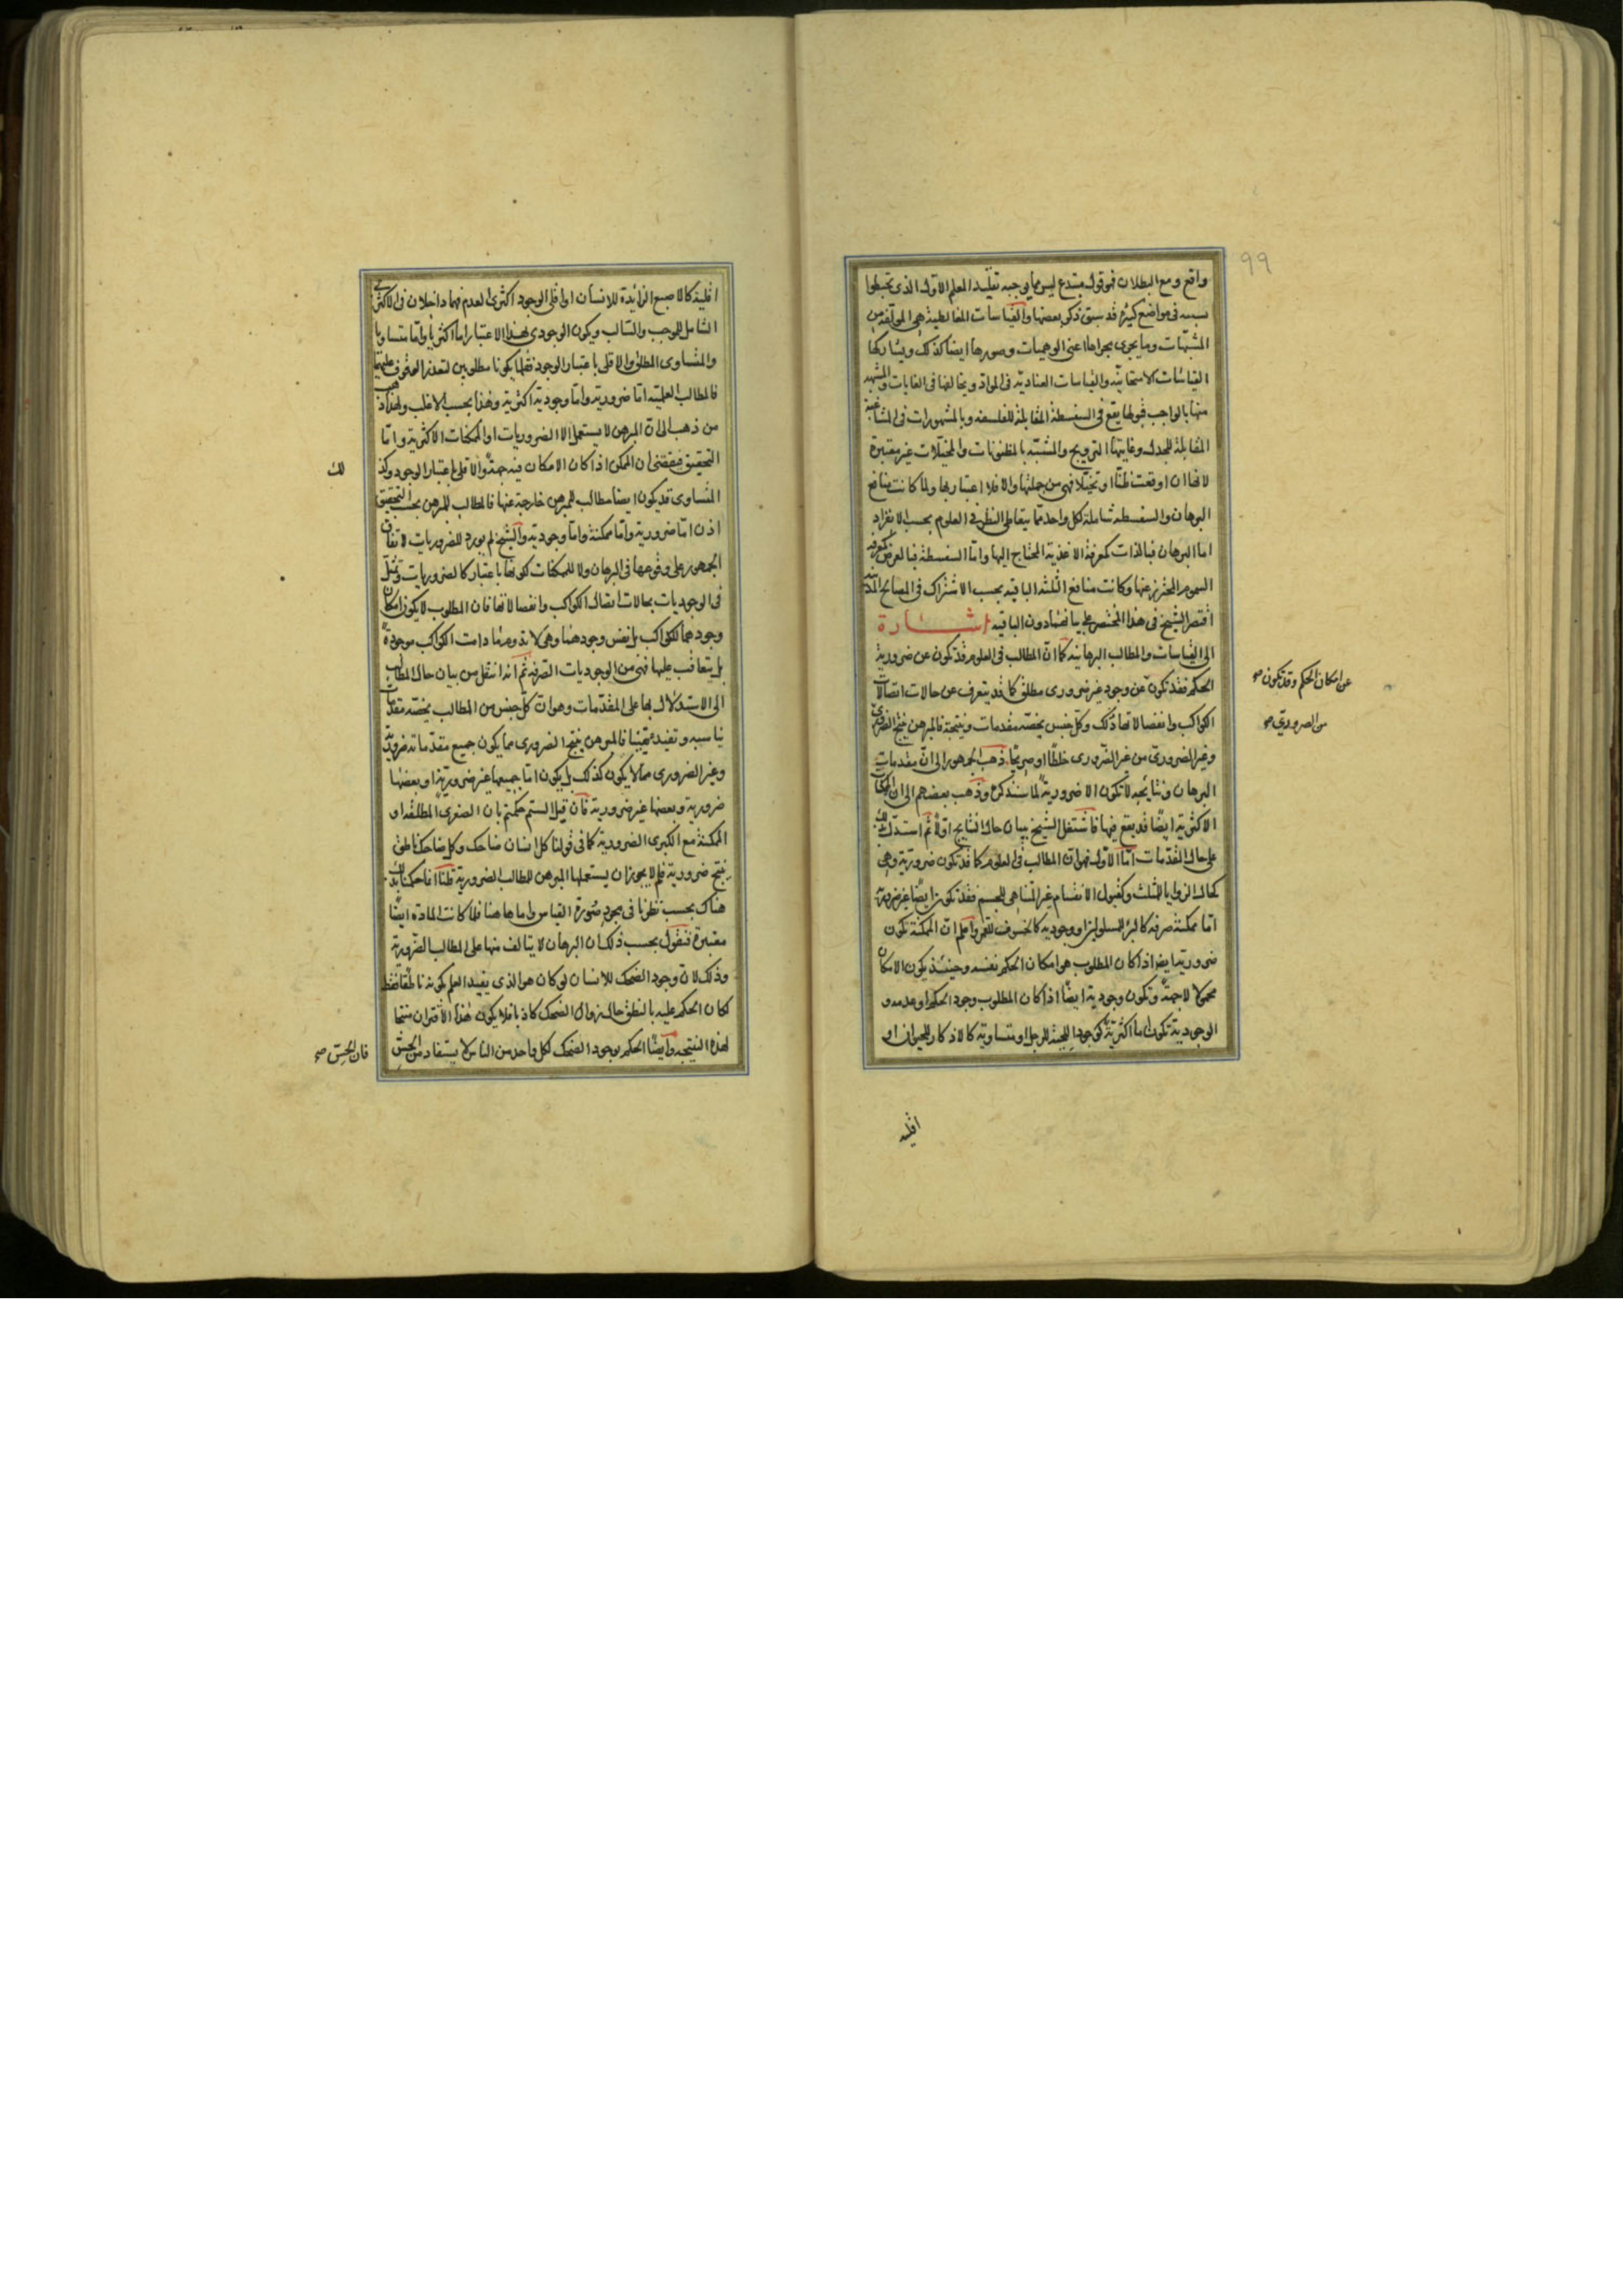 ٩٩
واقع ومع البطلان فهو قول مبتدع ليس مما يوجبه تقليد المعلم الاول الذى تخبطوا
بسببه فى مواضع كثيرة قد سبق ذكر بعضها والقياسات المغالطية هى المؤلفة من
المشبّهات وما يجرى مجراها اعنى الوهميات وصورها ايضا كذلك ويشاركها
القياسات الامتحانية والقياسات العنادية فى المواد ويخالفها فى الغايات والمشبه
منها بالواجب قبولها يقع فى السفسطة المقابلة للفلسفة وبالمشهورات فى المشاغبة
المقابلة للجدل وغايتها الترويج والمشبّه بالمظنونات والمخيّلات غير معتبرة
لانها ان اوقعت ظنّا او تخيّلا فهى من جملتها والا فلا اعتبار بها ولما كانت منافع
البرهان والسفسطة شاملة لكل واحد مما يتعاطى النظر فى العلوم بحسب الانفراد
اما البرهان فبالذات كمعرفة الاغذية المحتاج اليها واما السفسطة فبالعرض كمعرفة
السموم المحترز عنها وكانت منافع الثلثة الباقية بحسب الاشتراك فى المصالح المدنية
اقتصر الشيخ فى هذا المختصر على بيانهما دون الباقية اشارة
الى القياسات والمطالب البرهانية كما ان المطالب فى العلوم قد تكون عن ضرورية
عن امكان الحكم وقد تكون صح
الحكم فقد تكون عن وجود غير ضرورى مطلق كما قد يتعرف عن حالات اتصالات
الكواكب وانفصالاتها ذلك وكل جنس يخصّه مقدمات ونتيجة فالمبرهن ينتج الضرورى
من الضرورىّ صح
وغير الضرورىّ من غير الضّرورى خلطًا او صريحًا ذهب الجمهور الى انّ مقدمات
البرهان ونتايجه لا تكون الا ضرورية لما سنذكره وذهب بعضهم الى ان الممكنات
الاكثرية ايضًا قد يقع فيها فاشتغل الشيخ ببيان حال النتايج اوّلا ثم استدل بذلك
على حال المقدمات اما الاول فهو ان المطالب فى العلوم كما قد تكون ضرورية وهى
كحال الزوايا للمثلث وكقبول الانقسام غير المتناهى للجسم فقد تكون ايضًا غير ضرورية
اما ممكنة صرفة كالبرء للمسلولين او وجودية كالخسوف للقمر واعلم ان الممكنة تكون
ضرورية ايضا اذا كان المطلوب هو امكان الحكم نفسه وحينئذ يكون الامكان
محمولا لا جهةً وتكون وجودية ايضًا اذا كان المطلوب وجود الحكم او عدمه و
الوجودية تكون اما اكثرية كوجود اللحية للرجل او متساوية كالاذكار للحيوان او
اقلية
اقلية كالاصبع الزائدة للانسان او اقلى الوجود اكثرى العدم فهما داخلان فى الاكثرى
الشامل للموجب والسّالب ويكون الوجودى بهذا الاعتبار اما اكثريا واما متساويا
والمتساوى المطلق والاقلى باعتبار الوجود فقلما يكونا مطلوبين لتعذر الوقوف عليهما
فالمطالب العلمية اما ضرورية واما وجودية اكثرية وهذا بحسب الاغلب ولهذا ذهب
من ذهب الى ان المبرهن لا يستعمل الا الضروريات او الممكنات الاكثرية واما
التحقيق فيقتضى ان الممكن اذا كان الامكان فيه جهةً والاقلى باعتبار الوجود وكذ
لك
المتساوى قد يكون ايضا مطالب للمبرهن خارجة عنها فالمطالب للمبرهن بحسب التحقيق
اذن اما ضرورية واما ممكنة واما وجودية والشيخ لم يورد للضروريات لاتفاق
الجمهور على وقوعها فى البرهان ولا للممكنات لكونها باعتبار كالضروريات وتمثّل
فى الوجوديات بحالات اتصال الكواكب وانفصالاتها فان المطلوب لا يكون امكان
وجودهما للكواكب بل نفس وجودهما وهى لا تدوم ما دامت الكواكب موجودةً
بل يتعاقب عليها فهى من الوجوديات الصّرفة ثم انه انتقل من بيان حال المطالب
الى الاستدلال بها على المقدّمات وهو ان كل جنس من المطالب يخصّه مقدمات
يناسبه وتفيد يقينا فالمبرهن ينتج الضرورى مما يكون جميع مقدماته ضرورية
وغير الضرورى مما لا يكون كذلك بل يكون اما جميعها غير ضرورية او بعضها
ضرورية وبعضها غير ضرورية فان قيل الستم حكمتم بان الصغرى المطلقة او
الممكنة مع الكبرى الضرورية كما فى قولنا كل انسان ضاحك وكل ضاحك ناطق
ينتج ضرورية فلم لا يجوز ان يستعملها المبرهن للمطالب الضرورية قلنا انا حكمنا بذلك
هناك بحسب نظرنا فى مجرد صُورة القياس واما هاهنا فلما كانت المادة ايضًا
معتبرة فنقول بحسب ذلك ان البرهان لا يتالف منها على المطالب الضرورية
وذلك لان وجود الضحك للانسان لو كان هو الذى يفيد العلم بكونه ناطقا فقط
لكان الحكم عليه بالنطق حال زوال الضحك كاذبا فلا يكون هذا الاقتران منتجا
لهذه النتيجة وايضًا الحكم بوجود الضحك لكل واحد من الناس لا يستفاد من الحسّ
فان الحسّ صح